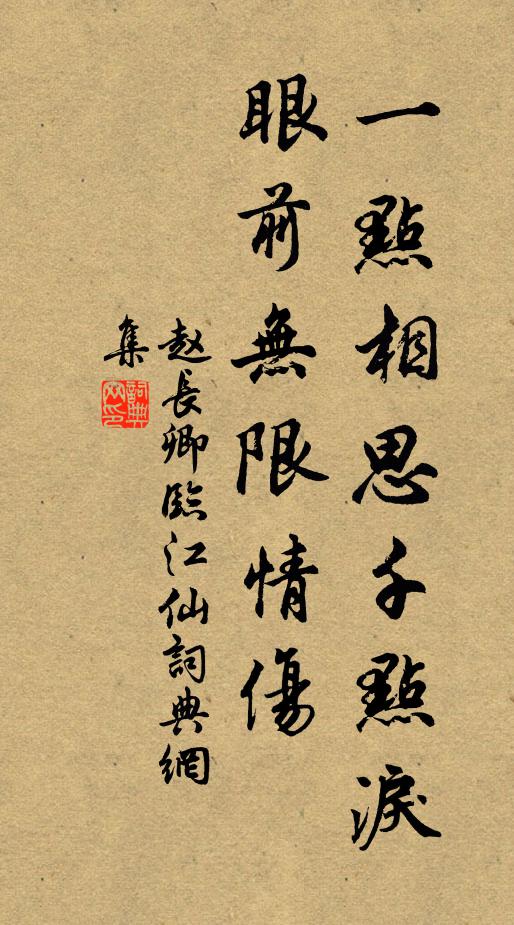 一點相思千點淚
眼前無限情傷
赵長卿臨江仙詞典網
集
詞典網印